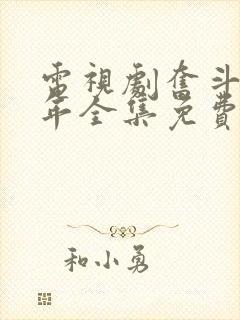 電視劇奮斗
年全集免費
和小勇